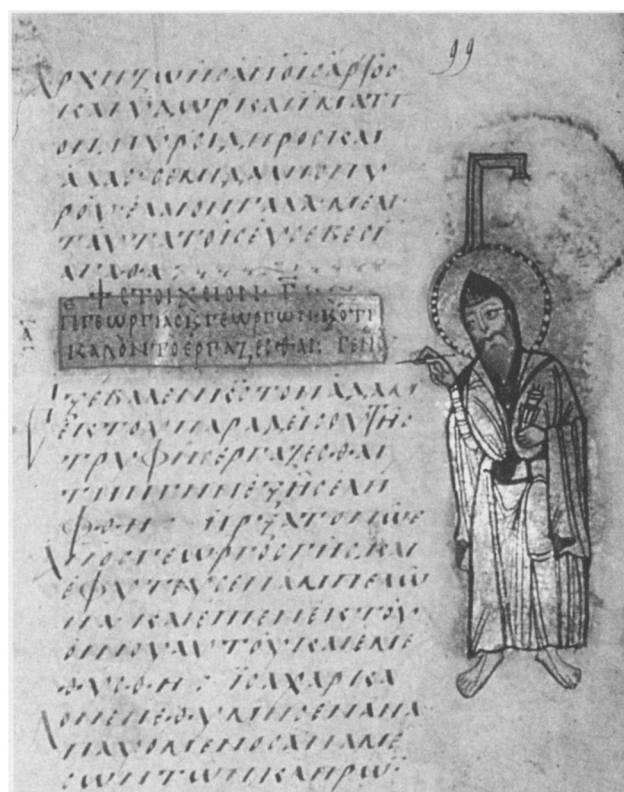 99
ΑΡΧΗ ΖΩΗC ΑΝΟΙC ΑΡΤΟC
ΚΑΙ ΥΔΩΡ ΚΑΙ ΙΜΑΤΙ
ΟΝ ΠΥΡ CΙΔΗΡΟC ΚΑΙ
ΑΛΑC CΕΜΙΔΑΛΙC ΠΥ
ΡΟΥ ΕΛΑΙΟΝ ΓΑΛΑ ΜΕΛΙ
ΤΑΥΤΑ ΤΟΙC ΕΥCΕΒΕCΙ
ΑΓΑΘΑ
CΤΟΙΧΕΙΟΝ Γ
ΠΓΕΩΡΓΙΑC Κ ΓΕΩΡΓΩΝ Κ ΟΤΙ
ΚΑΛΟΝ ΤΟ ΕΡΓΑΖΕCΘΑΙ ΓΕΝ
ΞΕΒΑΛΕΝ ΚC ΤΟΝ ΑΔΑΜ
ΕΚ ΤΟΥ ΠΑΡΑΔΕΙCΟΥ ΤΗC
ΤΡΥΦΗC ΕΡΓΑΖΕCΘΑΙ
ΤΗΝ ΓΗΝ ΕΞ ΗC ΕΛΗ
ΦΘΗ : ΗΡΞΑΤΟ ΝΩΕ
ΑΝΟC ΓΕΩΡΓΟC ΓΗC ΚΑΙ
ΕΦΥΤΕΥCΕΝ ΑΜΠΕΛΩ
ΝΑ ΚΑΙ ΕΠΙΕΝ ΕΚ ΤΟΥ
ΟΙΝΟΥ ΑΥΤΟΥ ΚΑΙ ΕΜΕ
ΘΥCΘΗ : ΙCΑΧΑΡ ΚΑ
ΛΟΝ ΕΠΕΘΥΜΗCΕΝ ΑΝΑ
ΠΑΥΟΜΕΝΟC ΑΝΑ ΜΕ
CΩΝ ΤΩΝ ΚΛΗΡΩ